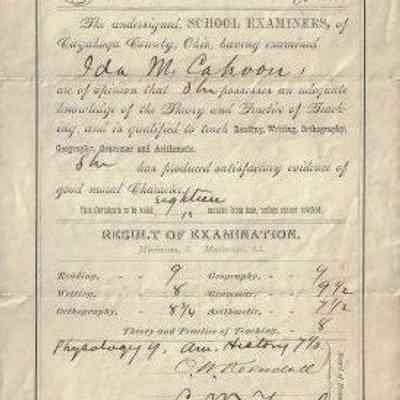 The undersigned, SCHOOL EXAMINERS, of
Cuyahoga County, Ohio, having examined
Ida M. Cahoon,
are of opinion that She possesses an adequate
knowledge of the Theory and Practice of Teach-
ing, and is qualified to teach Reading, Writing, Orthography,
Geography, Grammar and Arithmetic.
She has produced satisfactory evidence of
good moral Character.
eighteen
This Certificate to be valid 18 months from date, unless sooner revoked.
RESULT OF EXAMINATION.
Minimum, Maximum, 10.
Reading, - - 9 Geography, - - 9
Writing, - - 8 Grammar, - - 9 1/2
Orthography, - 8 3/4 Arithmetic, - - 7 1/2
Theory and Practice of Teaching, - 8
Physiology 9, Am. History 7 1/2